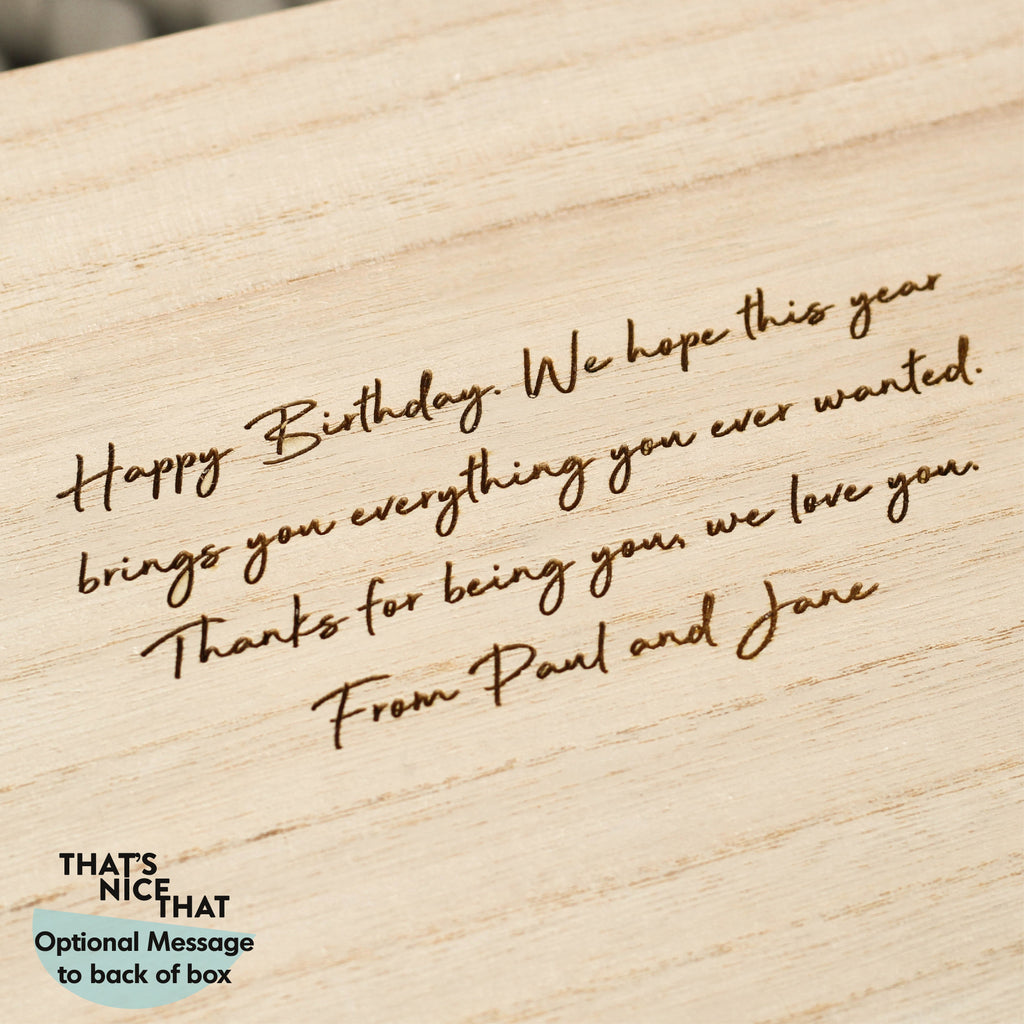 Happy Birthday. We hope this year
brings you everything you ever wanted.
Thanks for being you, we love you.
From Paul and Jane
THAT'S
NICE
THAT
Optional Message
to back of box